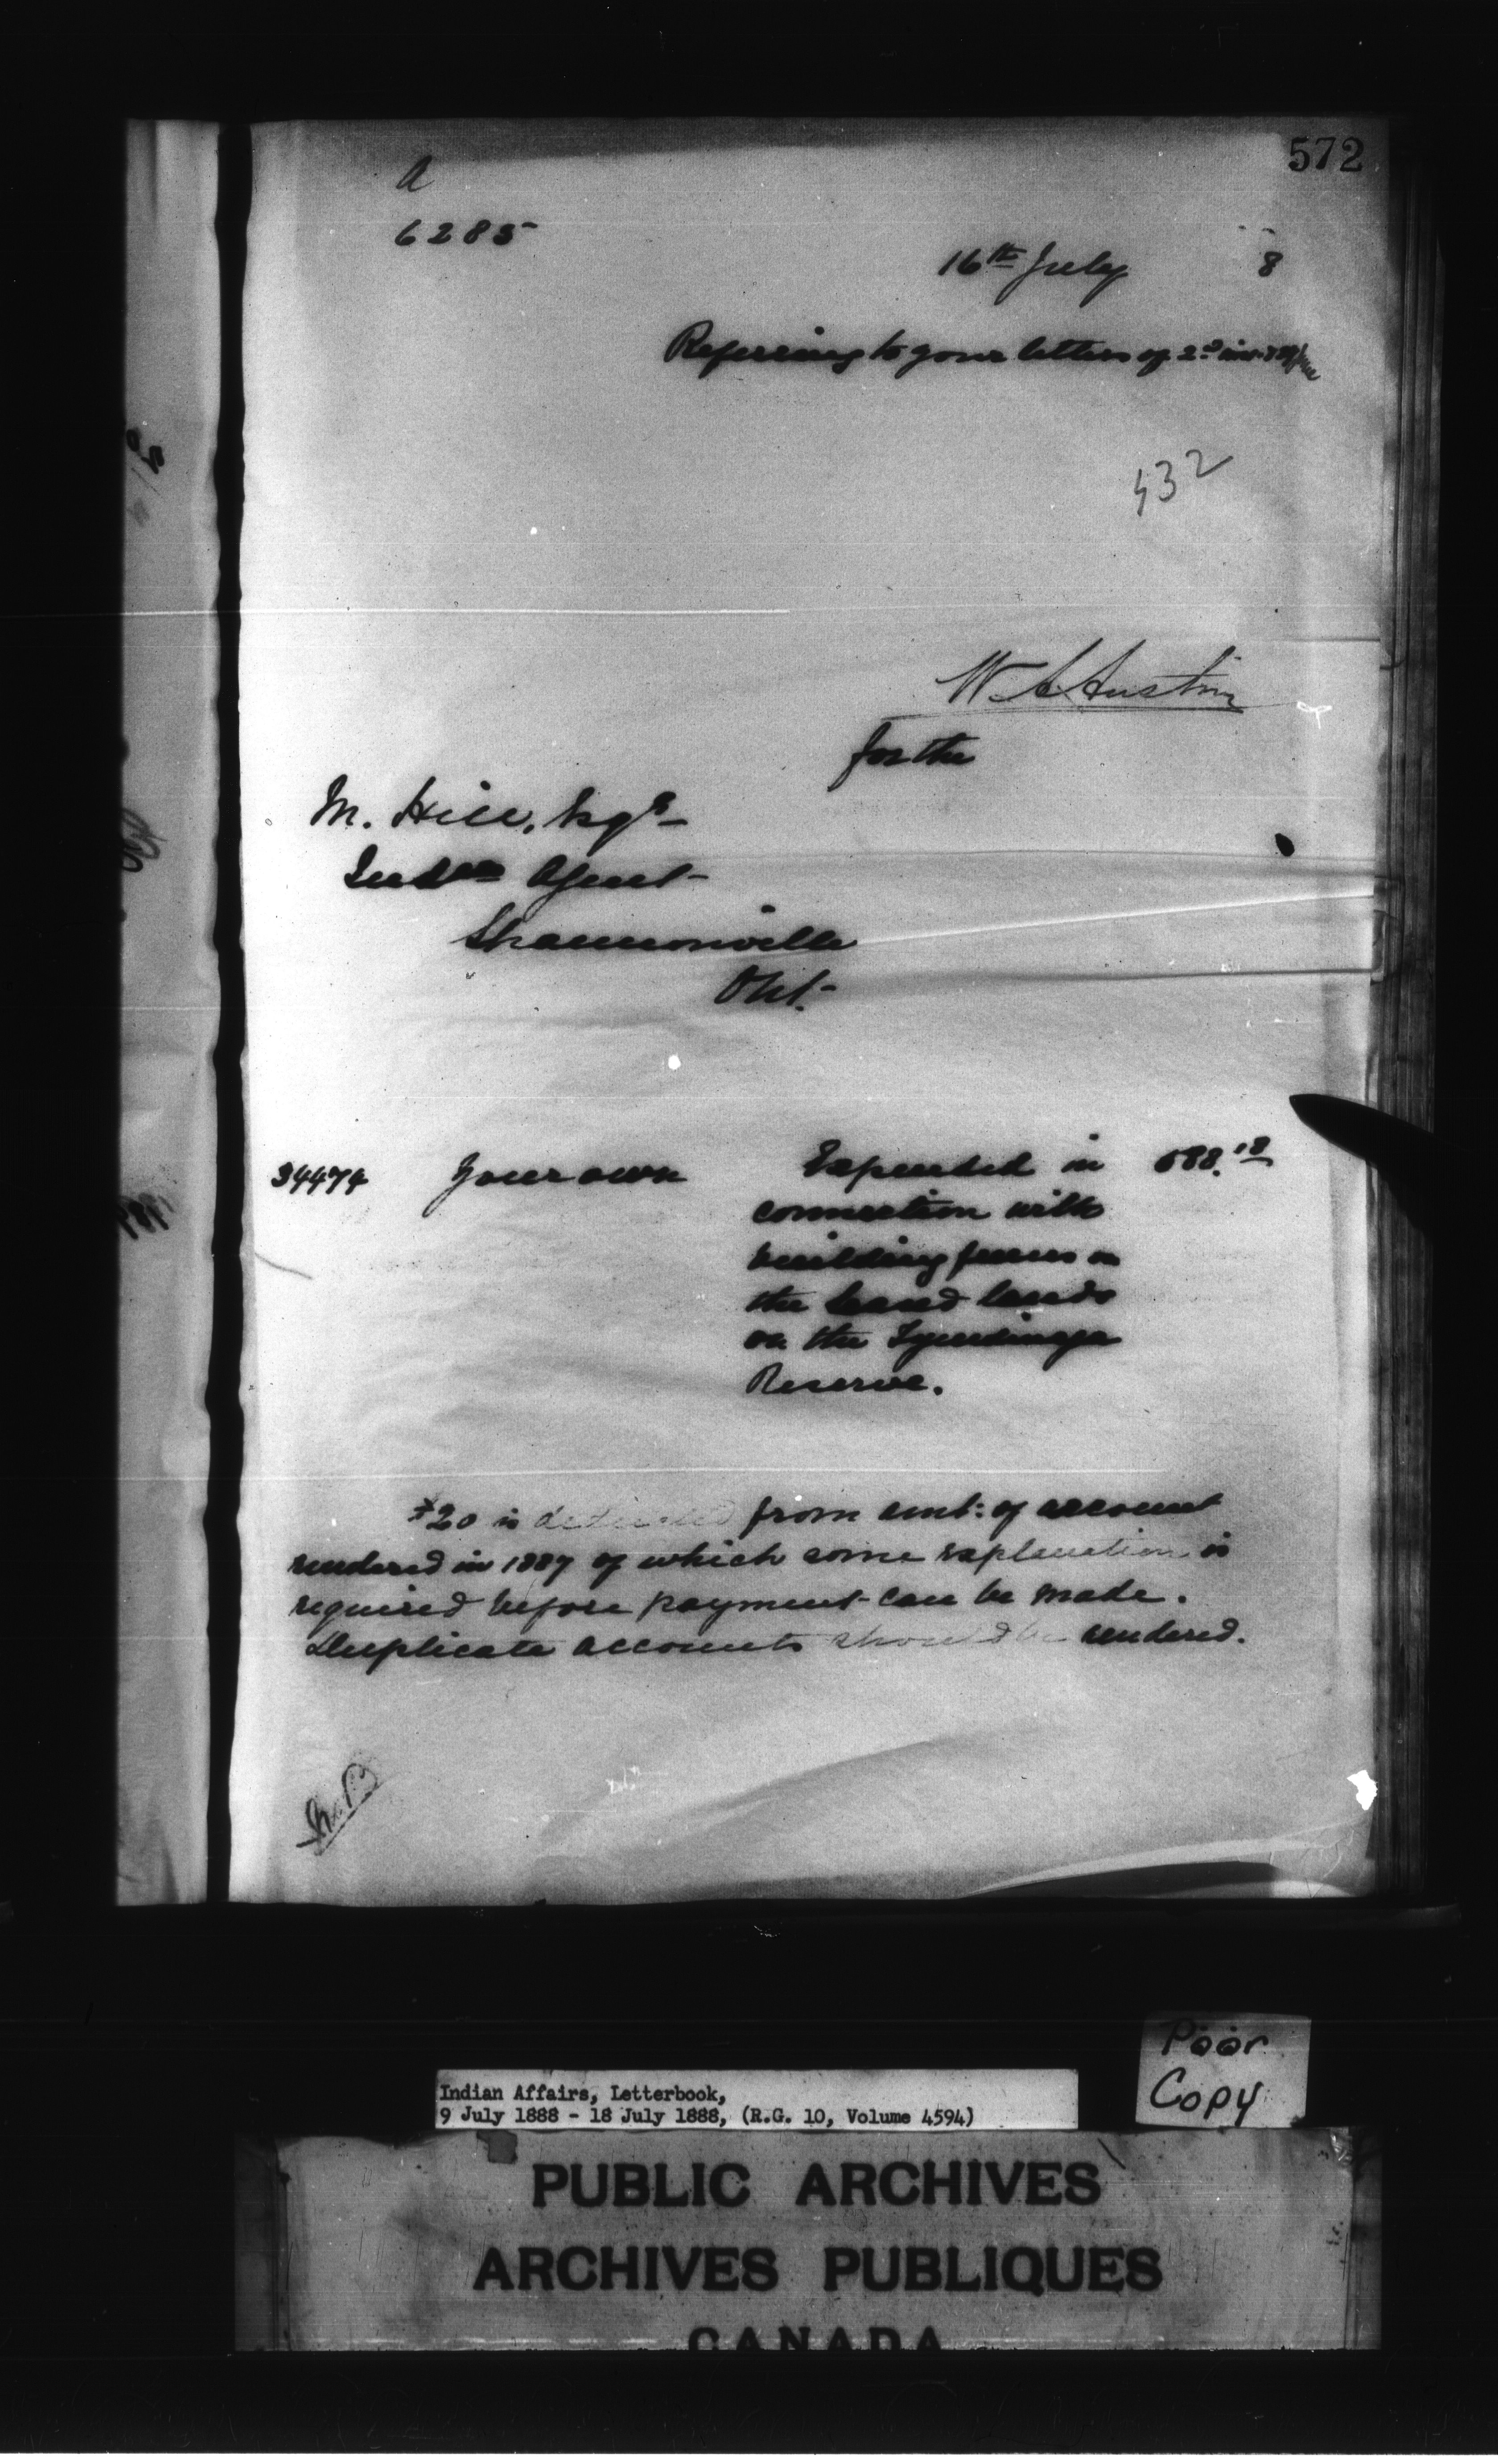 572
A
6285
16th July 8
Referring to your letters of 2d inst
432
W A Austin
for the
M. Hill, Esqr
Indian Agent
Shannonville
Ont.
34474 Your own Expended in 688.18
connection with
building fences on
the leased lands
on the Tyendinaga
Reserve.
$20 is deducted from amt: of account
rendered in 1887 of which some explanation is
required before payment can be made.
Duplicate accounts should be rendered.
Indian Affairs, Letterbook,
9 July 1888 - 18 July 1888, (R.G. 10, Volume 4594)
Poor
Copy
PUBLIC ARCHIVES
ARCHIVES PUBLIQUES
CANADA